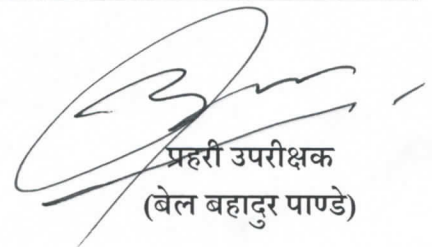 प्रहरी उपरीक्षक
(बेल बहादुर पाण्डे)